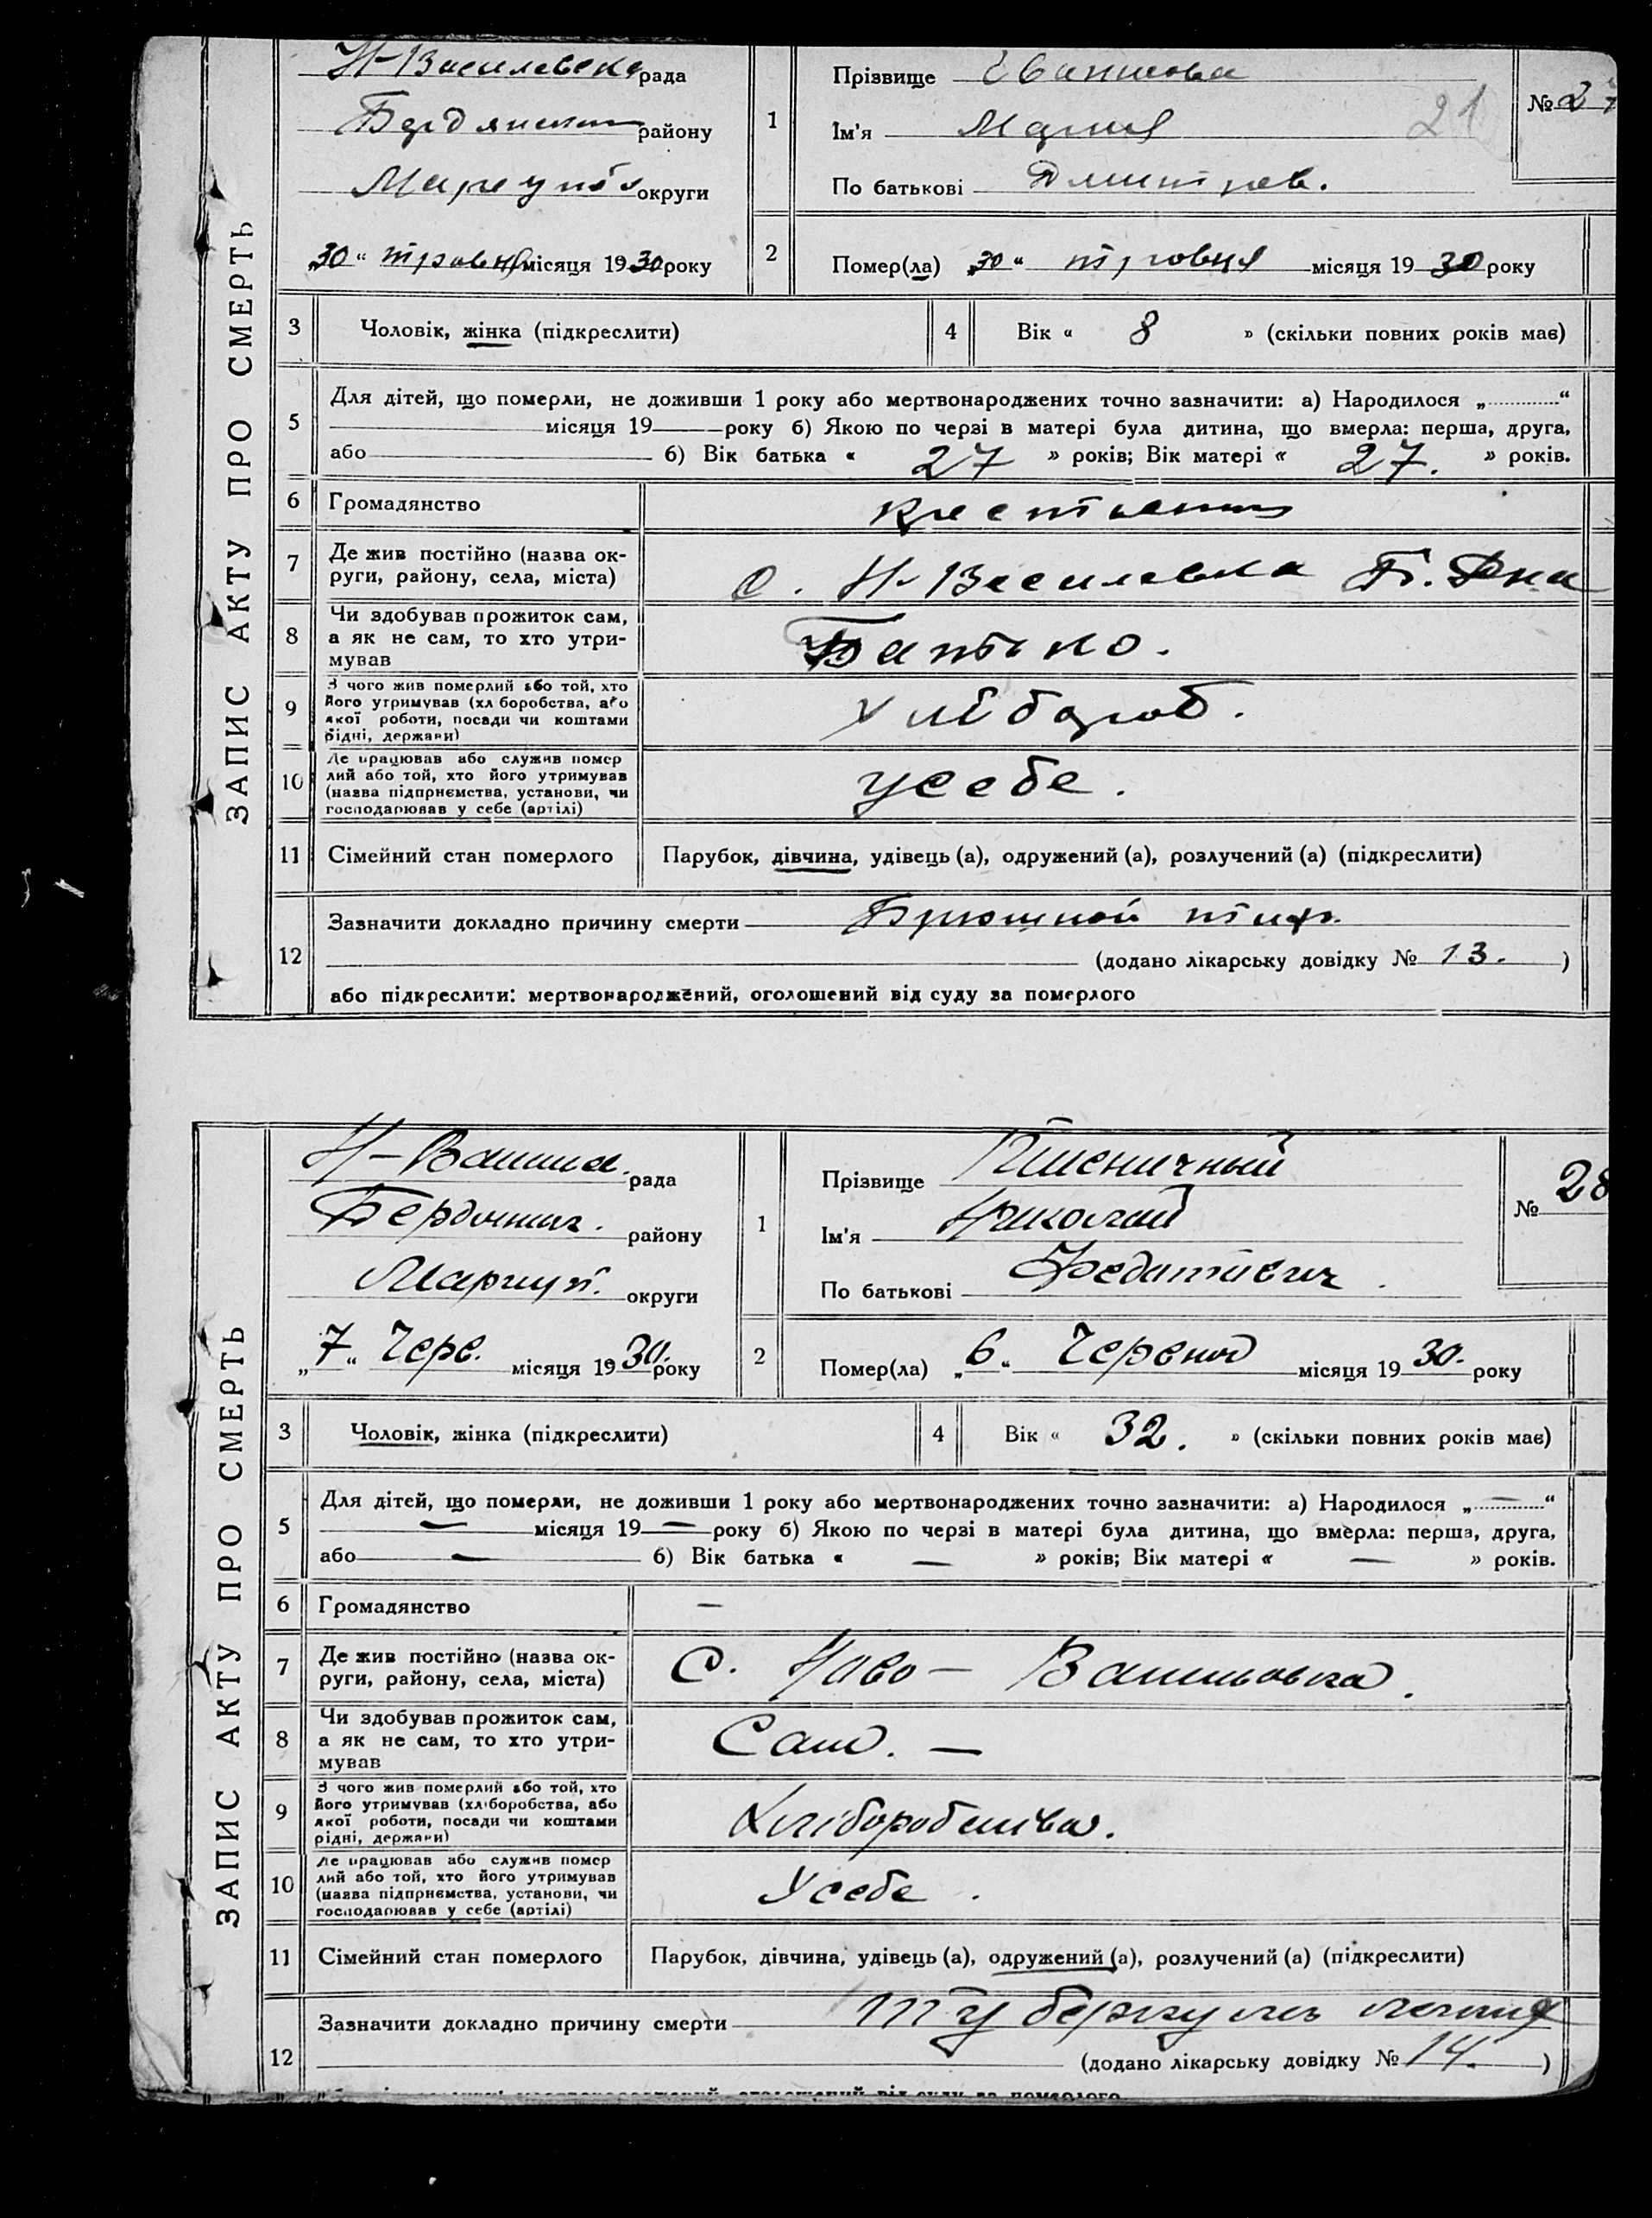 ЗАПИС АКТУ ПРО СМЕРТЬ
Н-Василевська рада
Бердянськ району
Маріуп округи
„30“ травня місяця 1930 року
1
Прізвище
Ім'я Мария
По батькові Дмитров.
21
№ 27
2
Помер(ла) „30“ травня місяця 1930 року
3 Чоловік, жінка (підкреслити)
4 Вік « 8 » (скільки повних років має)
5 Для дітей, що померли, не доживши 1 року або мертвонароджених точно зазначити: а) Народилося „ “
місяця 19 року б) Якою по черзі в матері була дитина, що вмерла: перша, друга,
або б) Вік батька « 27 » років; Вік матері « 27. » років.
6 Громадянство
7 Де жив постійно (назва ок-
руги, району, села, міста)
с. Н-Василевка Б. Рна
8 Чи здобував прожиток сам,
а як не сам, то хто утри-
мував
Батько.
9 З чого жив померлий або той, хто
його утримував (хліборобства, або
якої роботи, посади чи коштами
рідні, держави)
Хлібороб.
10 Де працював або служив помер
лий або той, хто його утримував
(назва підприємства, установи, чи
господарював у себе (артілі)
усебе.
11 Сімейний стан померлого
Парубок, дівчина, удівець (а), одружений (а), розлучений (а) (підкреслити)
12 Зазначити докладно причину смерти Брюшной тиф.
(додано лікарську довідку № 13. )
або підкреслити: мертвонароджений, оголошений від суду за померлого
ЗАПИС АКТУ ПРО СМЕРТЬ
рада
району
Мариуп. округи
„7“ Черв. місяця 1930. року
1
Прізвище Пшеничный
Ім'я Николай
По батькові Федотович
№ 28
2
Помер(ла) „6“ Червня місяця 1930. року
3 Чоловік, жінка (підкреслити)
4 Вік « 32. » (скільки повних років має)
5 Для дітей, що померли, не доживши 1 року або мертвонароджених точно зазначити: а) Народилося „ — “
— місяця 19 — року б) Якою по черзі в матері була дитина, що вмерла: перша, друга,
або — б) Вік батька « — » років; Вік матері « — » років.
6 Громадянство —
7 Де жив постійно (назва ок-
руги, району, села, міста)
С. Ново-Васильовка.
8 Чи здобував прожиток сам,
а як не сам, то хто утри-
мував
Сам. —
9 З чого жив померлий або той, хто
його утримував (хліборобства, або
якої роботи, посади чи коштами
рідні, держави)
Хліборобства.
10 Де працював або служив помер
лий або той, хто його утримував
(назва підприємства, установи, чи
господарював у себе (артілі)
Усебе.
11 Сімейний стан померлого
Парубок, дівчина, удівець (а), одружений (а), розлучений (а) (підкреслити)
12 Зазначити докладно причину смерти туберкульоз
(додано лікарську довідку № 14. )